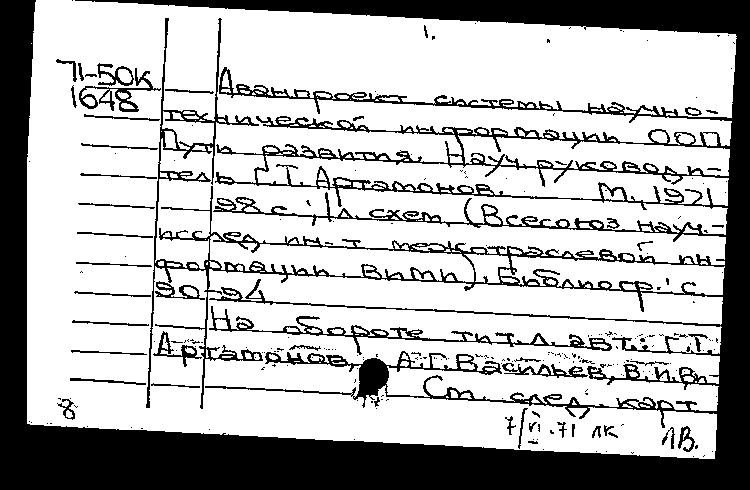 1.
71-50К
1648
Аванпроект системы научно-
технической информации ООП.
Пути развития. Науч. руководи-
тель Г.Т. Артамонов. М., 1971
98 с.; 1 л. схем. (Всесоюз. науч.-
исслед. ин-т межотраслевой ин-
формации. ВИМИ). Библиогр.: с.
90-94
На обороте тит. л. авт.: Г.Т.
Артамонов, А.Г. Васильев, В.И. Ви-
См. след. карт
8
7/VI.71 ЛК ЛВ.